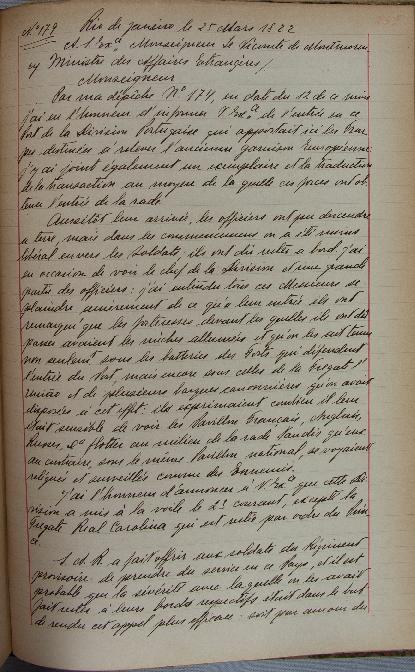 Nº 179 Rio de Janeiro le 25 Mars 1822
A S. Exce Monseigneur le Vicomte de Montmorency
Ministre des Affaires Etrangères/
Monseigneur
Par ma dépêche Nº 174, en date du 12 de ce mois
j'ai eu l'honneur d'informer V. Exce de l'entrée en ce
Port de la Division Portugaise qui apportait ici les Trou-
pes destinées à relever l'ancienne garnison Européenne
j'y ai joint également un exemplaire et la traduction
de la transaction au moyen de la quelle ces forces ont ob-
tenu l'entrée de la rade.
Aussitôt leur arrivée, les officiers ont pu descendre
à terre, mais dans les commencements on a été moins
libéral envers les Soldats, ils ont dû rester à bord. J'ai
eu occasion de voir le chef de la Division et une grande
partie des officiers: j'ai entendu tous ces Messieurs se
plaindre amèrement de ce qu'à leur entrée ils ont
remarqué que les forteresses devant les quelles ils ont dû
passer avaient les mèches allumées et qu'on les ait tenus
non seulement sous les batteries des Forts qui défendent
l'entrée du Port, mais encore sous celles de la Frégate l'
União et de plusieurs barques canonnières qu'on avait
disposées à cet effet: ils exprimaient combien il leur
était sensible de voir les Pavillons Français, Anglais,
Russes, &a flotter au milieu de la rade tandis qu'eux
au contraire, sous le même Pavillon national, se voyaient
relégués et surveillés comme des Ennemis.
J'ai l'honneur d'annoncer à V. Exce que cette Di-
vision a mis à la voile le 23 courant, excepté la
Frégate Real Carolina qui est restée par ordre du Prin-
ce.
S. A. R. a fait offrir aux soldats du Régiment
provisoire de prendre du service en ce Pays, et il est
probable que la sévérité avec la quelle on les avait
fait rester à leurs bords respectifs était dans le but
de rendre cet appel plus efficace: soit par amour du